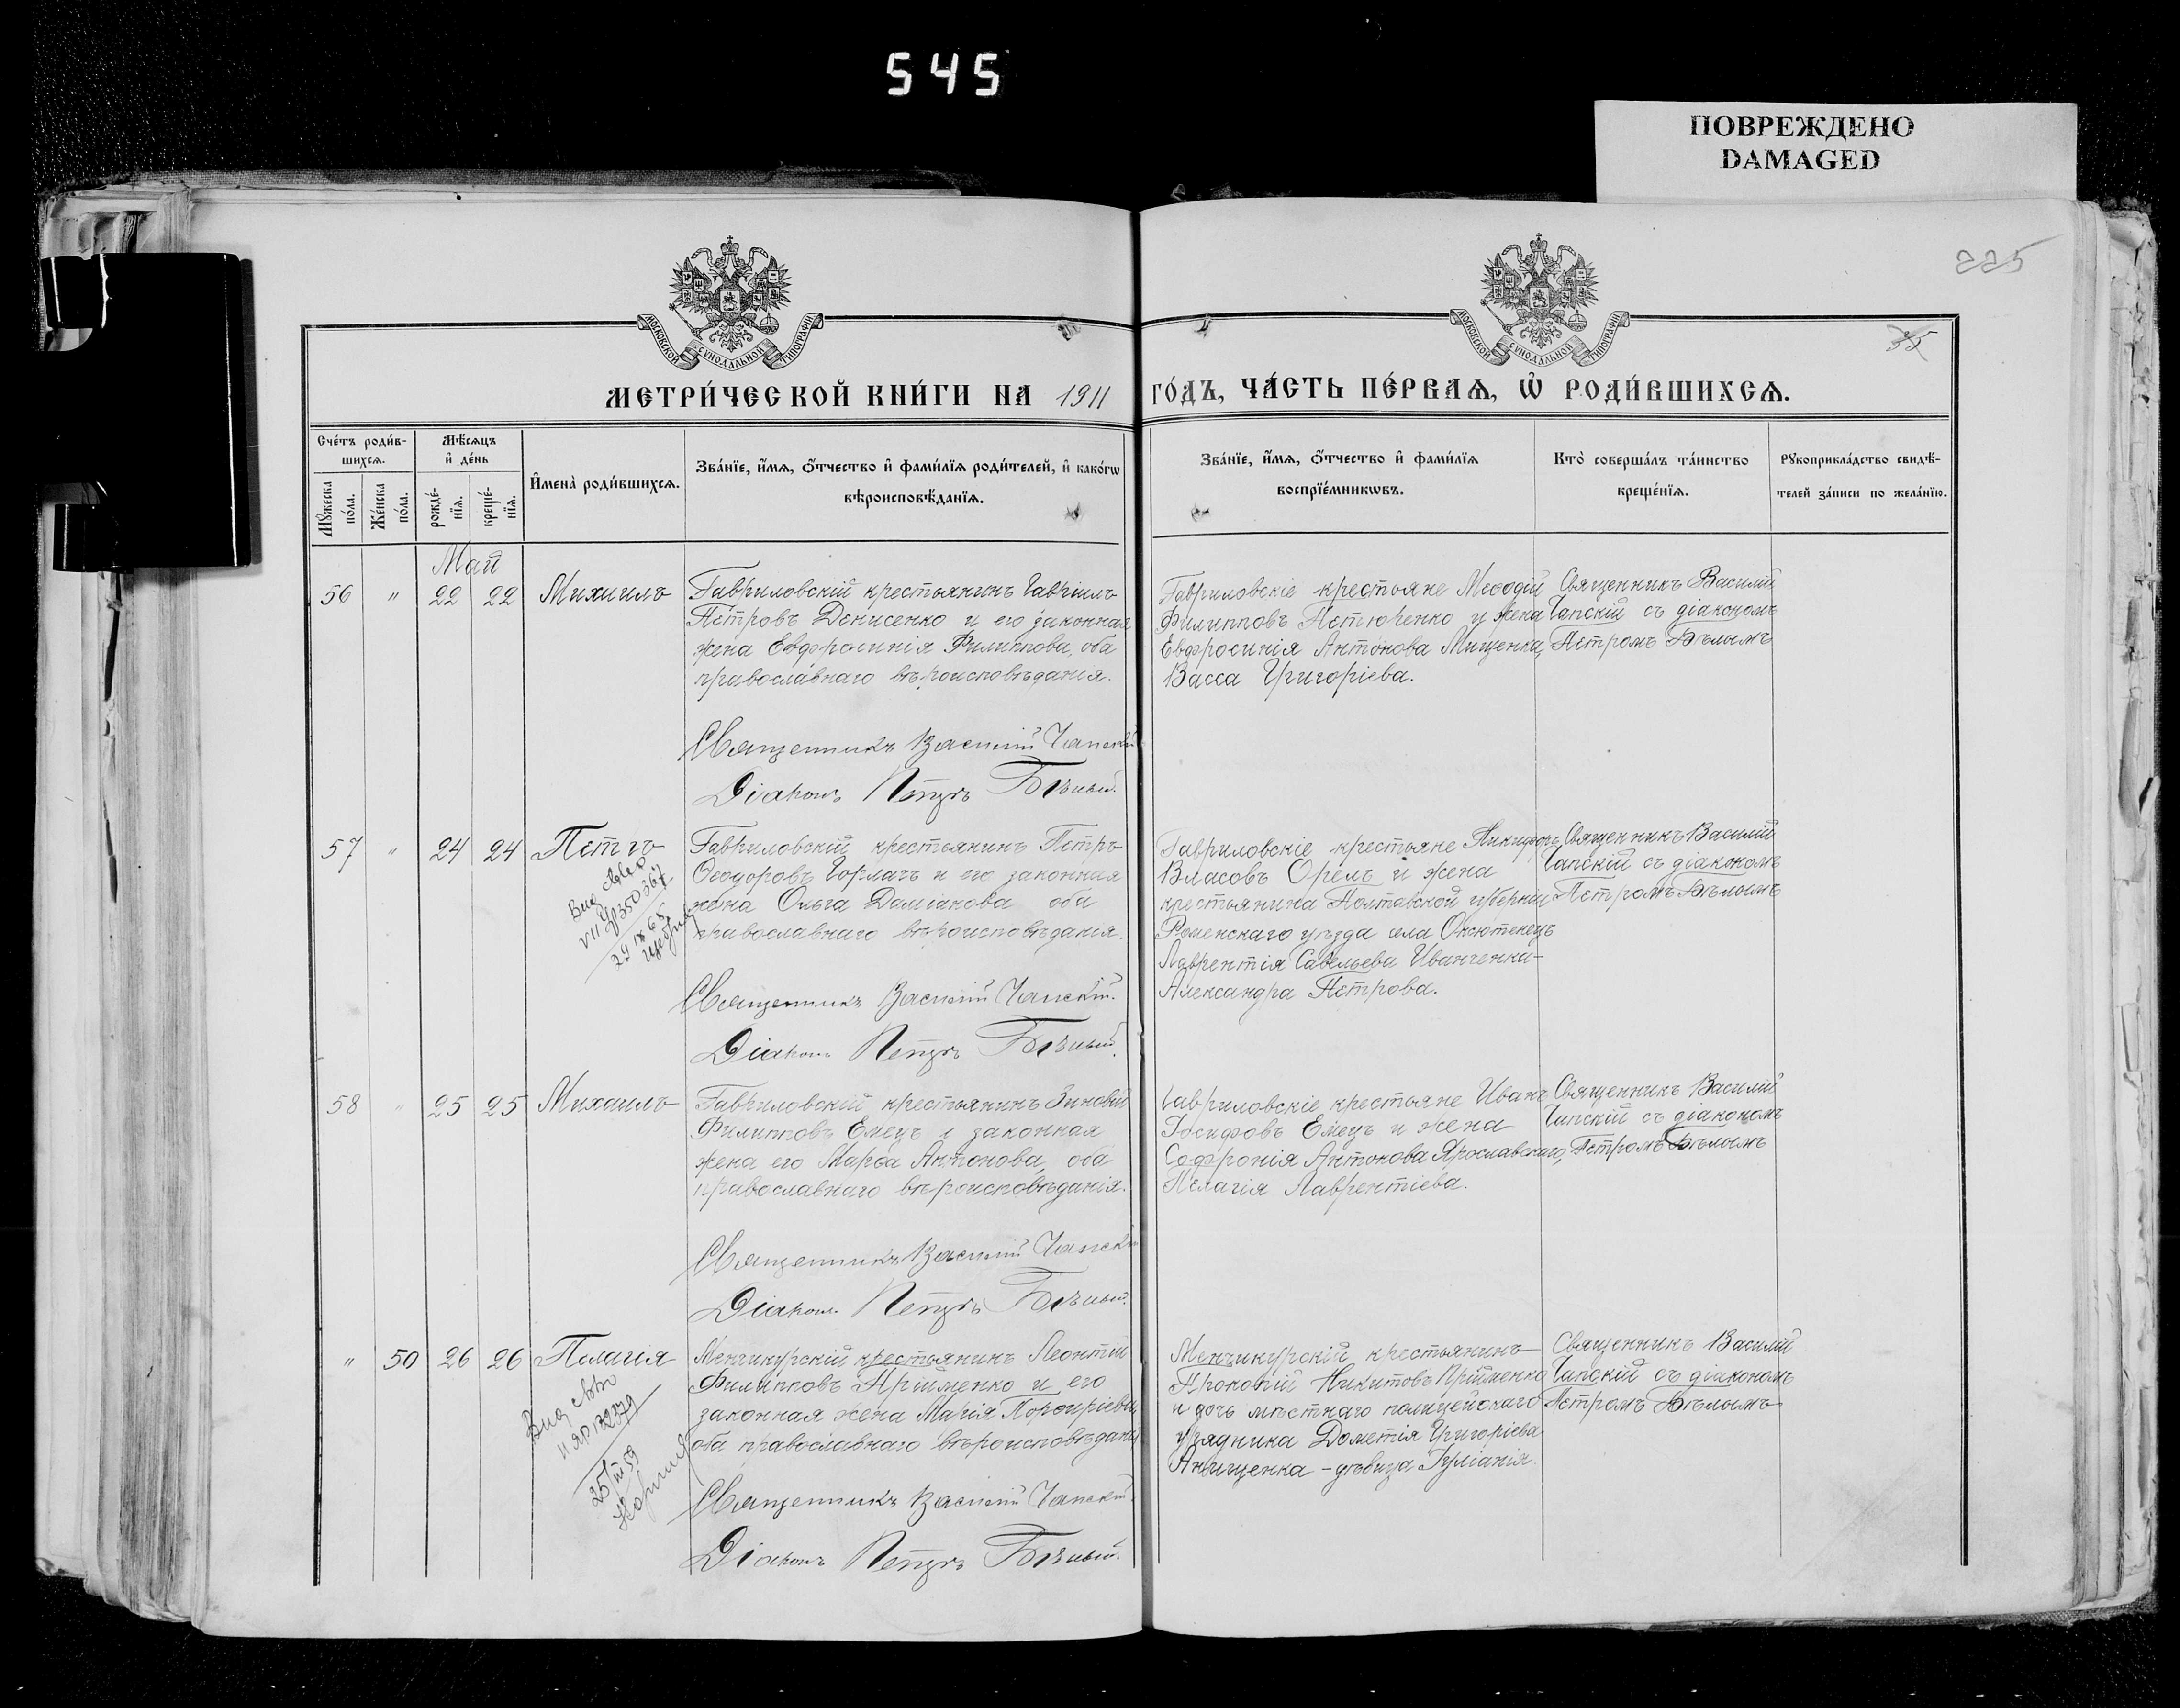 545
ПОВРЕЖДЕНО
DAMAGED
225
35
МОСКОВСКОЙ СѴНОДАЛЬНОЙ ТИПОГРАФІИ
МОСКОВСКОЙ СѴНОДАЛЬНОЙ ТИПОГРАФІИ
МЕТРИ́ЧЕСКОЙ КНИ́ГИ НА 1911 ГО́ДЪ, ЧА́СТЬ ПЕ́РВАѦ, Ѡ҆ РОДИ́ВШИХСѦ.
Сче́тъ роди́в-
шихсѧ.
Мꙋ́жеска по́ла.
Же́нска по́ла.
Мѣ́сѧцъ
и҆ де́нь
рожде́-
нїѧ.
креще́-
нїѧ.
И҆мена̀ роди́вшихсѧ.
Зва́нїе, и҆́мѧ, ѻ҆́тчество и҆ фами́лїѧ роди́телей, и҆ како́гѡ
вѣроисповѣ́данїѧ.
Зва́нїе, и҆́мѧ, ѻ҆́тчество и҆ фами́лїѧ
воспрїе́мникѡвъ.
Кто̀ соверша́лъ та́инство
креще́нїѧ.
Рꙋкоприкла́дство свидѣ́-
телей за́писи по жела́нїю.
Май
56 " 22 22 Михаилъ
Гавриловскій крестьянинъ Гавріилъ
Петровъ Денисенко и его законная
жена Евфросинія Филиппова, оба
православнаго вѣроисповѣданія.
Священникъ Василій Чапскій
Діаконъ Петръ Бѣлый.
Гавриловскіе крестьяне Меѳодій
Филипповъ Петюренко и жена
Евфросинія Антонова Мищенка,
Васса Григоріева.
Священникъ Василій
Чапскій съ діакономъ
Петромъ Бѣлымъ
57 " 24 24 Петръ
Гавриловскій крестьянинъ Петръ
Ѳеодоровъ Горлачъ и его законная
жена Ольга Даміанова оба
православнаго вѣроисповѣданія.
Священникъ Василій Чапскій.
Діаконъ Петръ Бѣлый.
Гавриловскіе крестьяне Никифоръ
Власовъ Орелъ и жена
крестьянина Полтавской губерніи
Роменскаго уѣзда села Оксютенецъ
Лаврентія Савельева Иванченка-
Александра Петрова.
Священникъ Василій
Чапскій съ діакономъ
Петромъ Бѣлымъ
58 " 25 25 Михаилъ
Гавриловскій крестьянинъ Зиновій
Филипповъ Емецъ и законная
жена его Марѳа Антонова, оба
православнаго вѣроисповѣданія.
Священникъ Василій Чапскій
Діаконъ Петръ Бѣлый.
Гавриловскіе крестьяне Иванъ
Іосифовъ Емецъ и жена
Софронія Антонова Ярославскаго,
Пелагія Лаврентіева.
Священникъ Василій
Чапскій съ діакономъ
Петромъ Бѣлымъ
" 50 26 26 Пелагія
Менчикурскій крестьянинъ Леонтій
Филипповъ Пріименко и его
законная жена Марія Порфиріева,
оба православнаго вѣроисповѣданія
Священникъ Василій Чапскій.
Діаконъ Петръ Бѣлый.
Менчикурскій крестьянинъ
Прокопій Никитовъ Пріименко
и дочь мѣстнаго полицейскаго
урядника Дометія Григоріева
Анищенка - дѣвица Іуліанія.
Священникъ Василій
Чапскій съ діакономъ
Петромъ Бѣлымъ